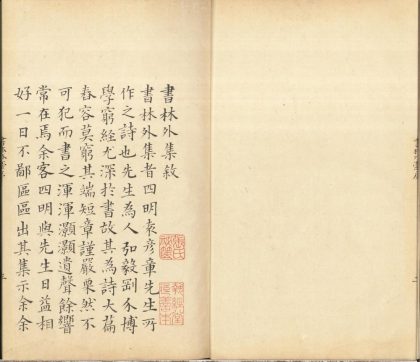 書林外集敘
書林外集者四明袁彥章先生所
作之詩也先生為人弘毅剛介博
學窮經尤深於書故其為詩大篇
舂容莫窮其端短章謹嚴栗然不
可犯而書之渾渾灝灝遺聲餘響
常在焉余客四明與先生日益相
好一日不鄙區區出其集示余余